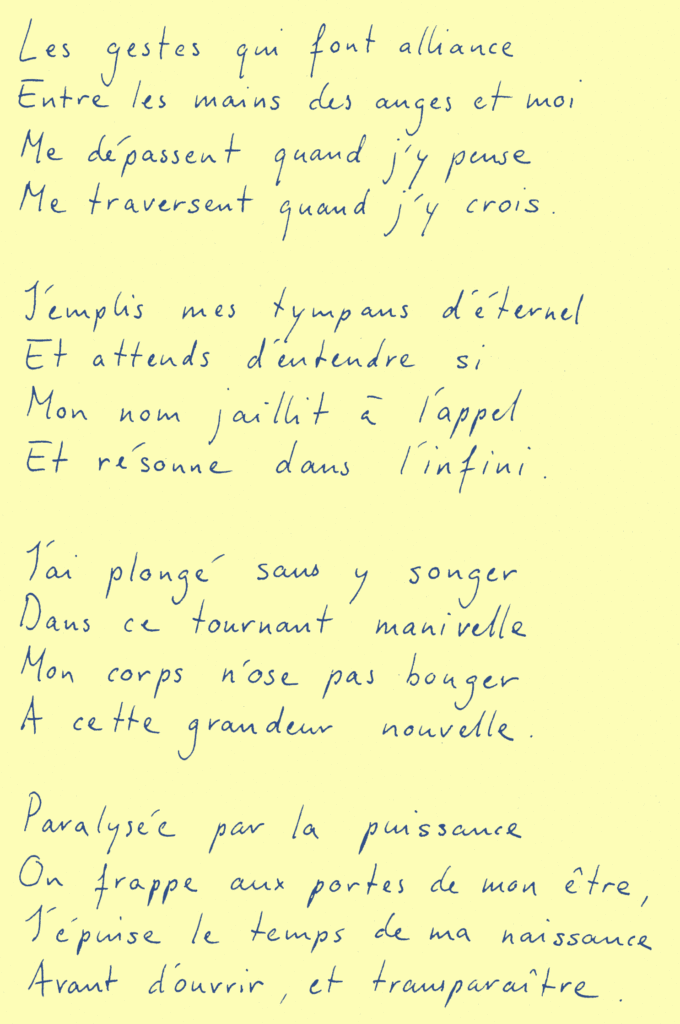 Les gestes qui font alliance
Entre les mains des anges et moi
Me dépassent quand j'y pense
Me traversent quand j'y crois.
J'emplis mes tympans d'éternel
Et attends d'entendre si
Mon nom jaillit à l'appel
Et résonne dans l'infini.
J'ai plongé sans y songer
Dans ce tournant manivelle
Mon corps n'ose pas bouger
A cette grandeur nouvelle.
Paralysée par la puissance
On frappe aux portes de mon être,
J'épuise le temps de ma naissance
Avant d'ouvrir, et transparaître.